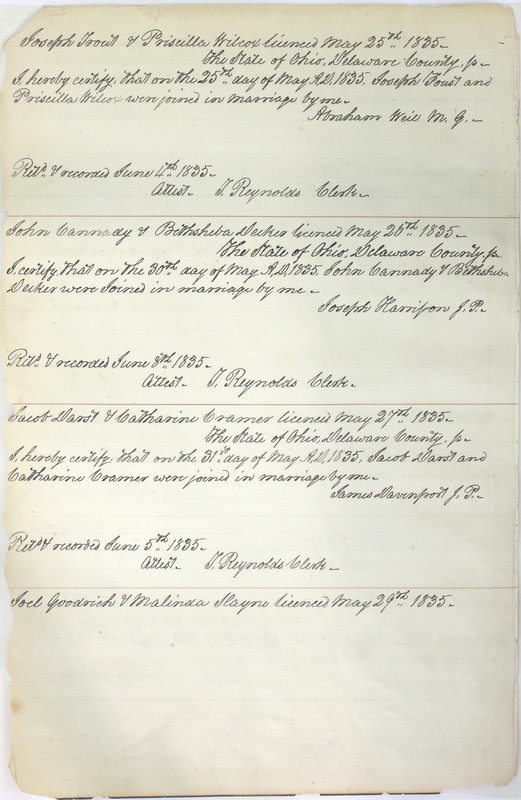 Joseph Trout & Priscilla Wilcox licenced May 25th 1835-
The State of Ohio, Delaware County, ss-
I, hereby certify, that on the 25th day of May A.D. 1835, Joseph Toust and
Priscilla Wilcox were joined in marriage by me-
Abraham Weil M. G.-
Retd. & recorded June 4th 1835-
Attest- T. Reynolds Clerk-
John Cannady & Bethsheba Decker licenced May 26th 1835-
The State of Ohio, Delaware County, ss
I, certify that on the 30th day of May A.D. 1835, John Cannady & Bethsheba
Decker were Joined in marriage by me-
Joseph Harrison J. P.-
Retd. & recorded June 8th 1835-
Attest- T. Reynolds Clerk-
Jacob Darst & Catharine Cramer licenced May 27th 1835-
The State of Ohio, Delaware County, ss-
I, hereby certify, that on the 31st day of May A.D. 1835, Jacob Darst and
Catharine Cramer were joined in marriage by me-
James Davenport J. P.-
Retd. & recorded June 5th 1835-
Attest- T. Reynolds Clerk-
Joel Goodrich & Malinda Slayne licenced May 29th 1835-